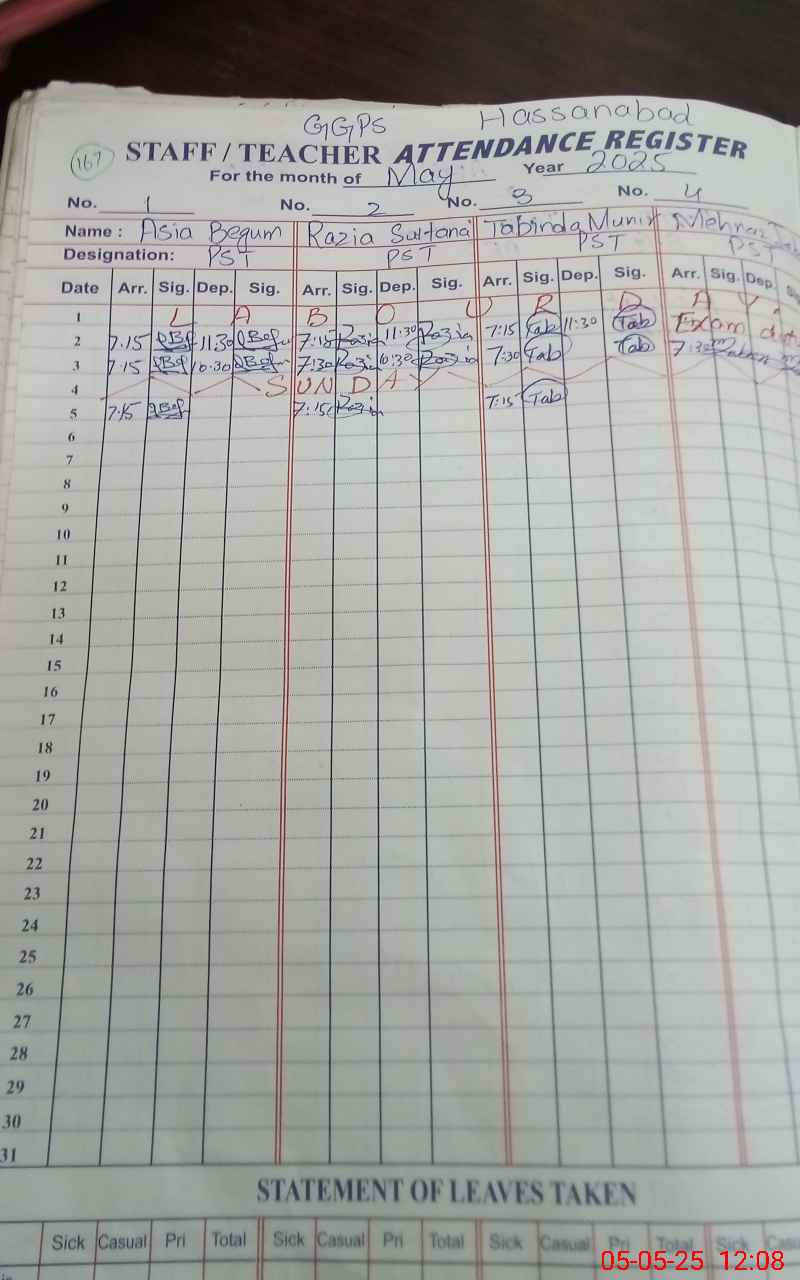 GGPS Hassanabad
167 STAFF / TEACHER ATTENDANCE REGISTER
For the month of May Year 2025
No. 1 No. 2 No. 3 No. 4
Name : Asia Begum Razia Sultana Tabinda Munir
Designation: PST PST PST PST
Date Arr. Sig. Dep. Sig. Arr. Sig. Dep. Sig. Arr. Sig. Dep. Sig. Arr. Sig. Dep.
1 L A B O U R D A Y
2 7:15 11:30 7:15 Razia 11:30 Razia 7:15 Tab 11:30 Tab Exam
3 7:15 10:30 7:30 Razia 10:30 Razia 7:30 Tab Tab 7:30
4 S U N D A Y
5 7:15 7:15 Razia 7:15 Tab
6
7
8
9
10
11
12
13
14
15
16
17
18
19
20
21
22
23
24
25
26
27
28
29
30
31
STATEMENT OF LEAVES TAKEN
Sick Casual Pri Total Sick Casual Pri Total Sick Casual Pri Total Sick
05-05-25 12:08